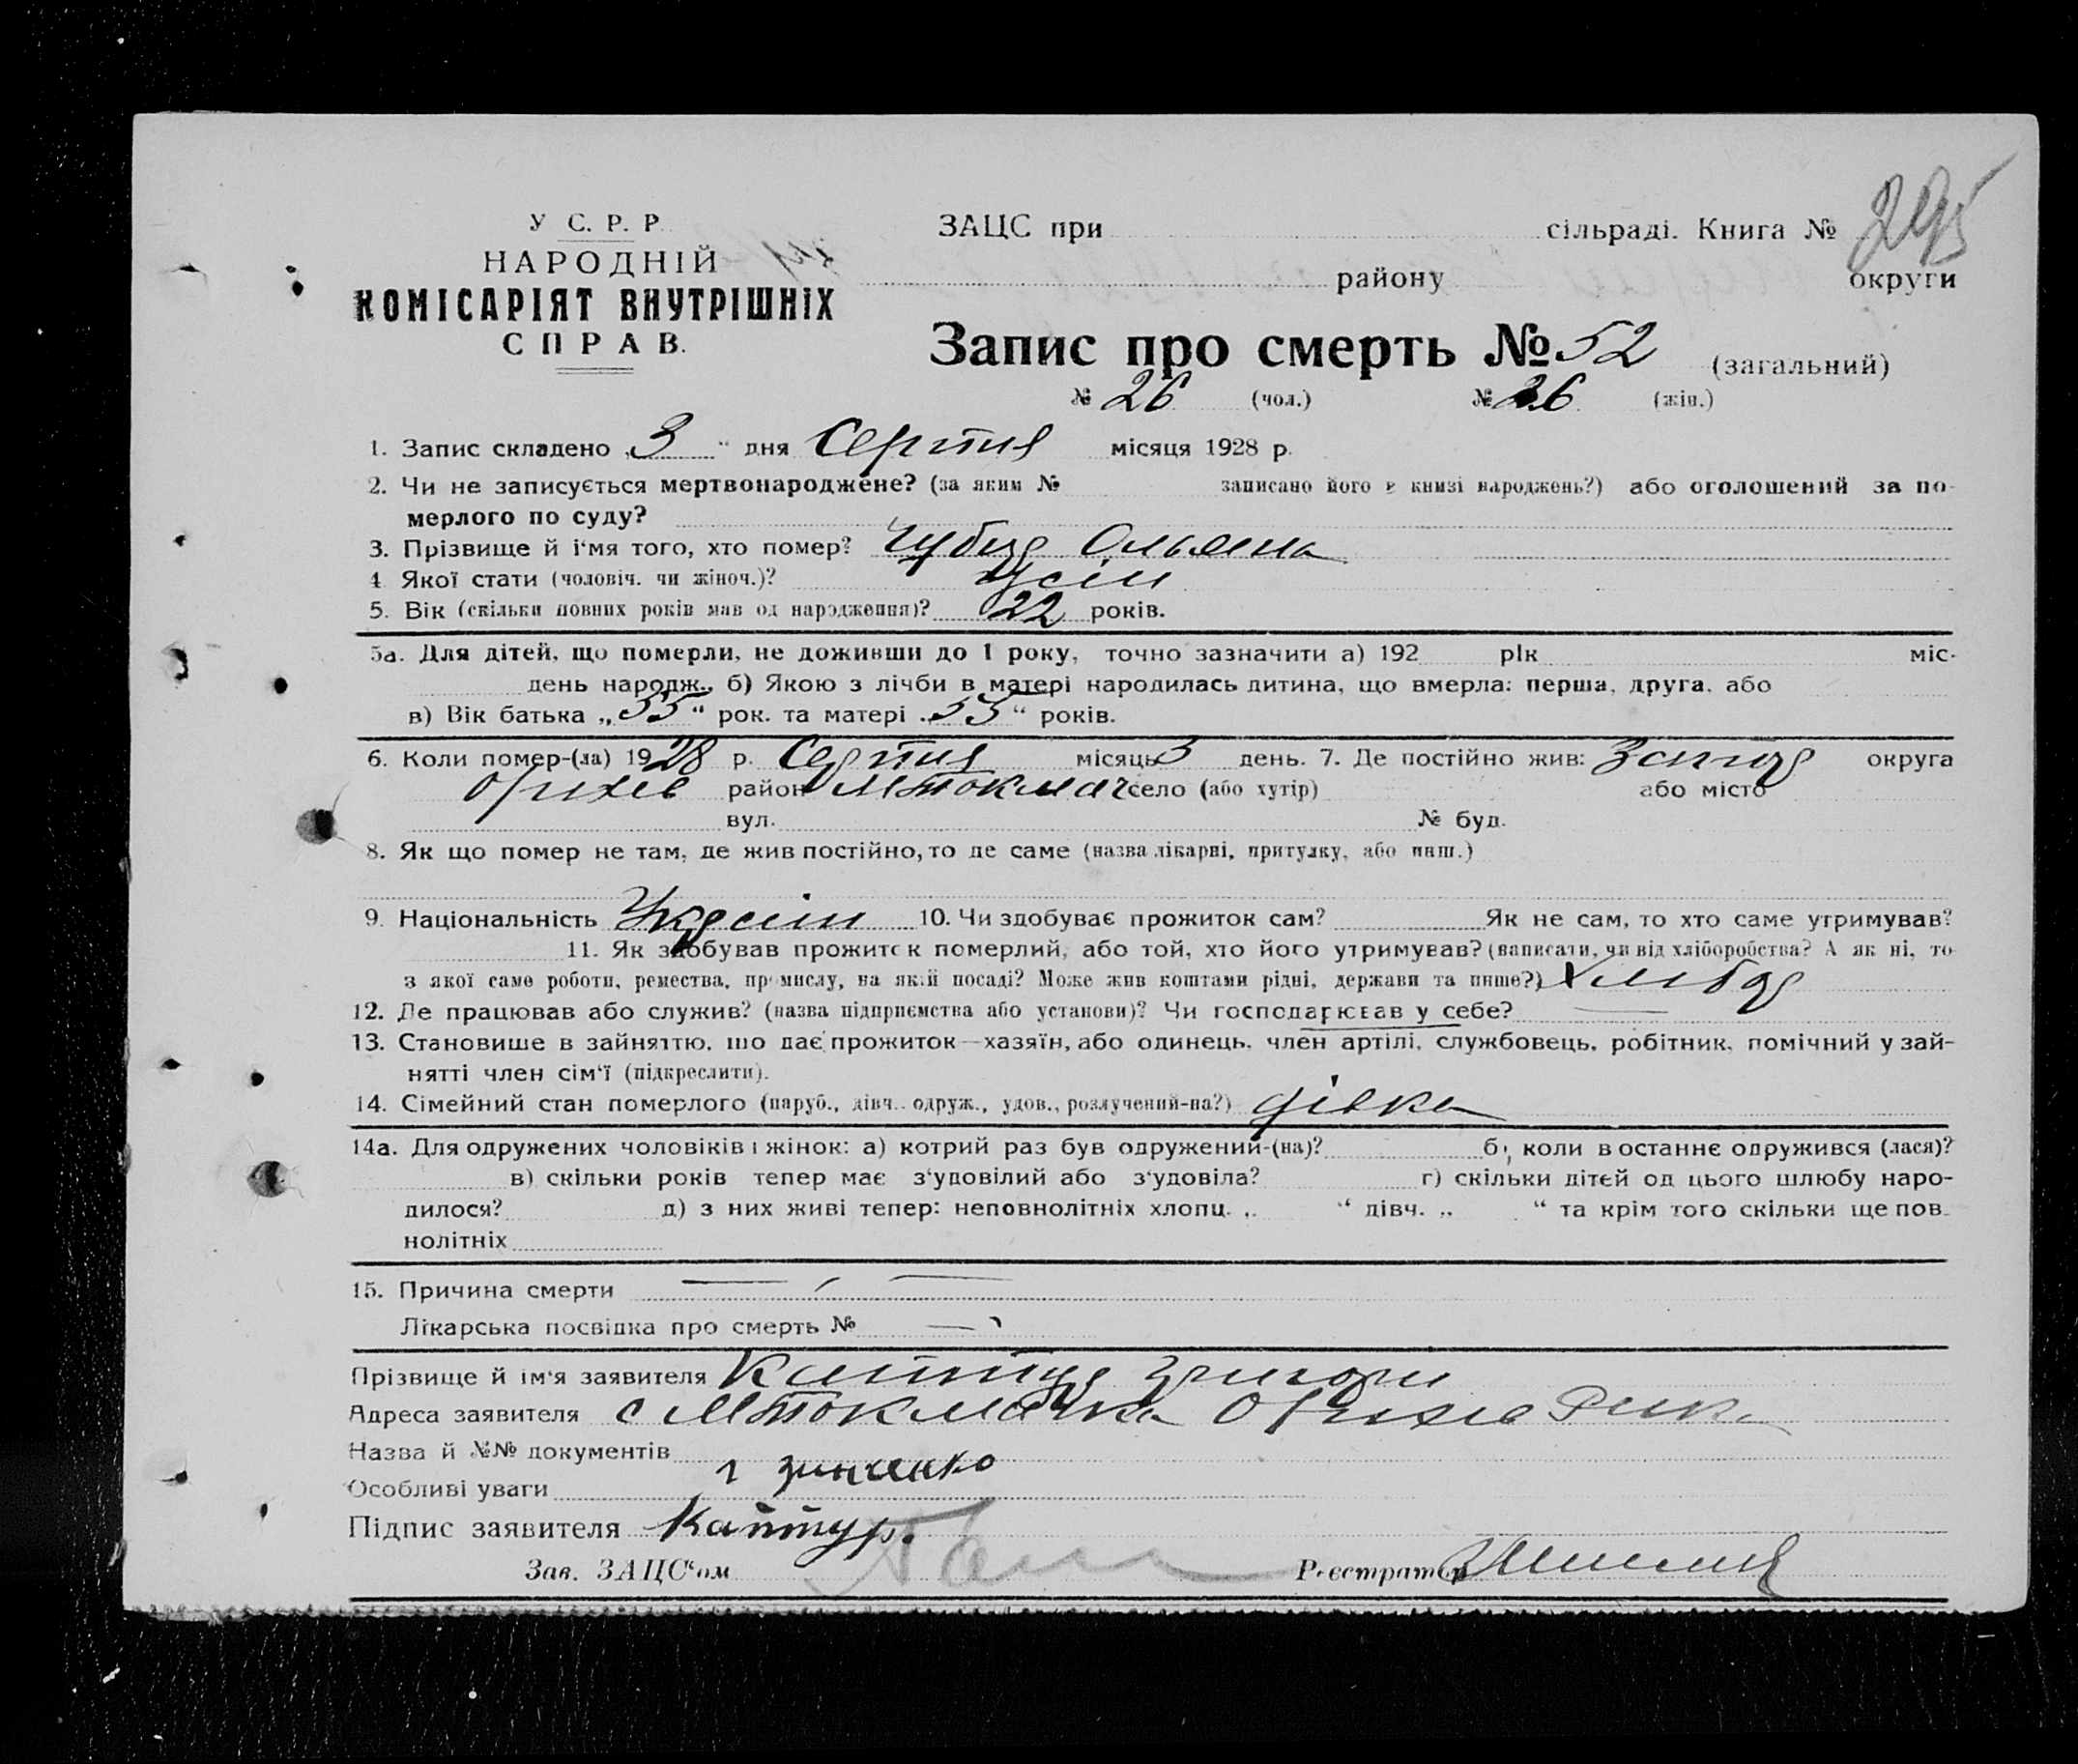 У С. Р. Р
НАРОДНІЙ
КОМІСАРІЯТ ВНУТРІШНІХ
СПРАВ.
ЗАЦС при сільраді. Книга № 295
району округи
Запис про смерть № 52 (загальний)
№ 26 (чол.) № 26 (жін.)
1. Запис складено „3“ дня Серпня місяця 1928 р.
2. Чи не записується мертвонароджене? (за яким № записано його в книзі народжень?) або оголошений за по-
мерлого по суду?
3. Прізвище й і‘мя того, хто помер?
4 Якої стати (чоловіч. чи жіноч.)?
5. Вік (скільки повних років мав од народження)? 22 років.
5а. Для дітей, що померли, не доживши до 1 року, точно зазначити а) 192 рік міс-
день народж., б) Якою з лічби в матері народилась дитина, що вмерла: перша, друга, або
в) Вік батька „55“ рок. та матері „55“ років.
6. Коли помер-(ла) 1928 р. Серпня місяць 3 день. 7. Де постійно жив: округа
Оріхів район МТокмач село (або хутір) або місто
вул. № буд.
8. Як що помер не там, де жив постійно, то де саме (назва лікарні, притулку, або инш.)
9. Національність 10. Чи здобуває прожиток сам? Як не сам, то хто саме утримував?
11. Як здобував прожиток померлий, або той, хто його утримував? (написати, чи від хліборобства? А як ні, то
з якої саме роботи, ремества, промислу, на якій посаді? Може жив коштами рідні, держави та инше?) Хлибор
12. Де працював або служив? (назва підприємства або установи)? Чи господарював у себе? —
13. Становище в зайняттю, що дає прожиток—хазяїн, або одинець, член артілі, службовець, робітник, помічний у зай-
нятті член сім‘ї (підкреслити).
14. Сімейний стан померлого (паруб., дівч. одруж., удов., розлучений-на?) дівка
14а. Для одружених чоловіків і жінок: а) котрий раз був одружений-(на)? б) коли в останнє одружився (лася)?
в) скільки років тепер має з‘удовілий або з‘удовіла? г) скільки дітей од цього шлюбу наро-
дилося? д) з них живі тепер: неповнолітніх хлопц. „ “ дівч. „ “ та крім того скільки ще пов-
нолітніх
15. Причина смерти — , —
Лікарська посвідка про смерть № —
Прізвище й ім‘я заявителя Каптур Григори
Адреса заявителя с МТокмачка Оріхів
Назва й №№ документів
Особливі уваги г зинченко
Підпис заявителя Каптур.
Зав. ЗАЦС‘ом Реєстратор